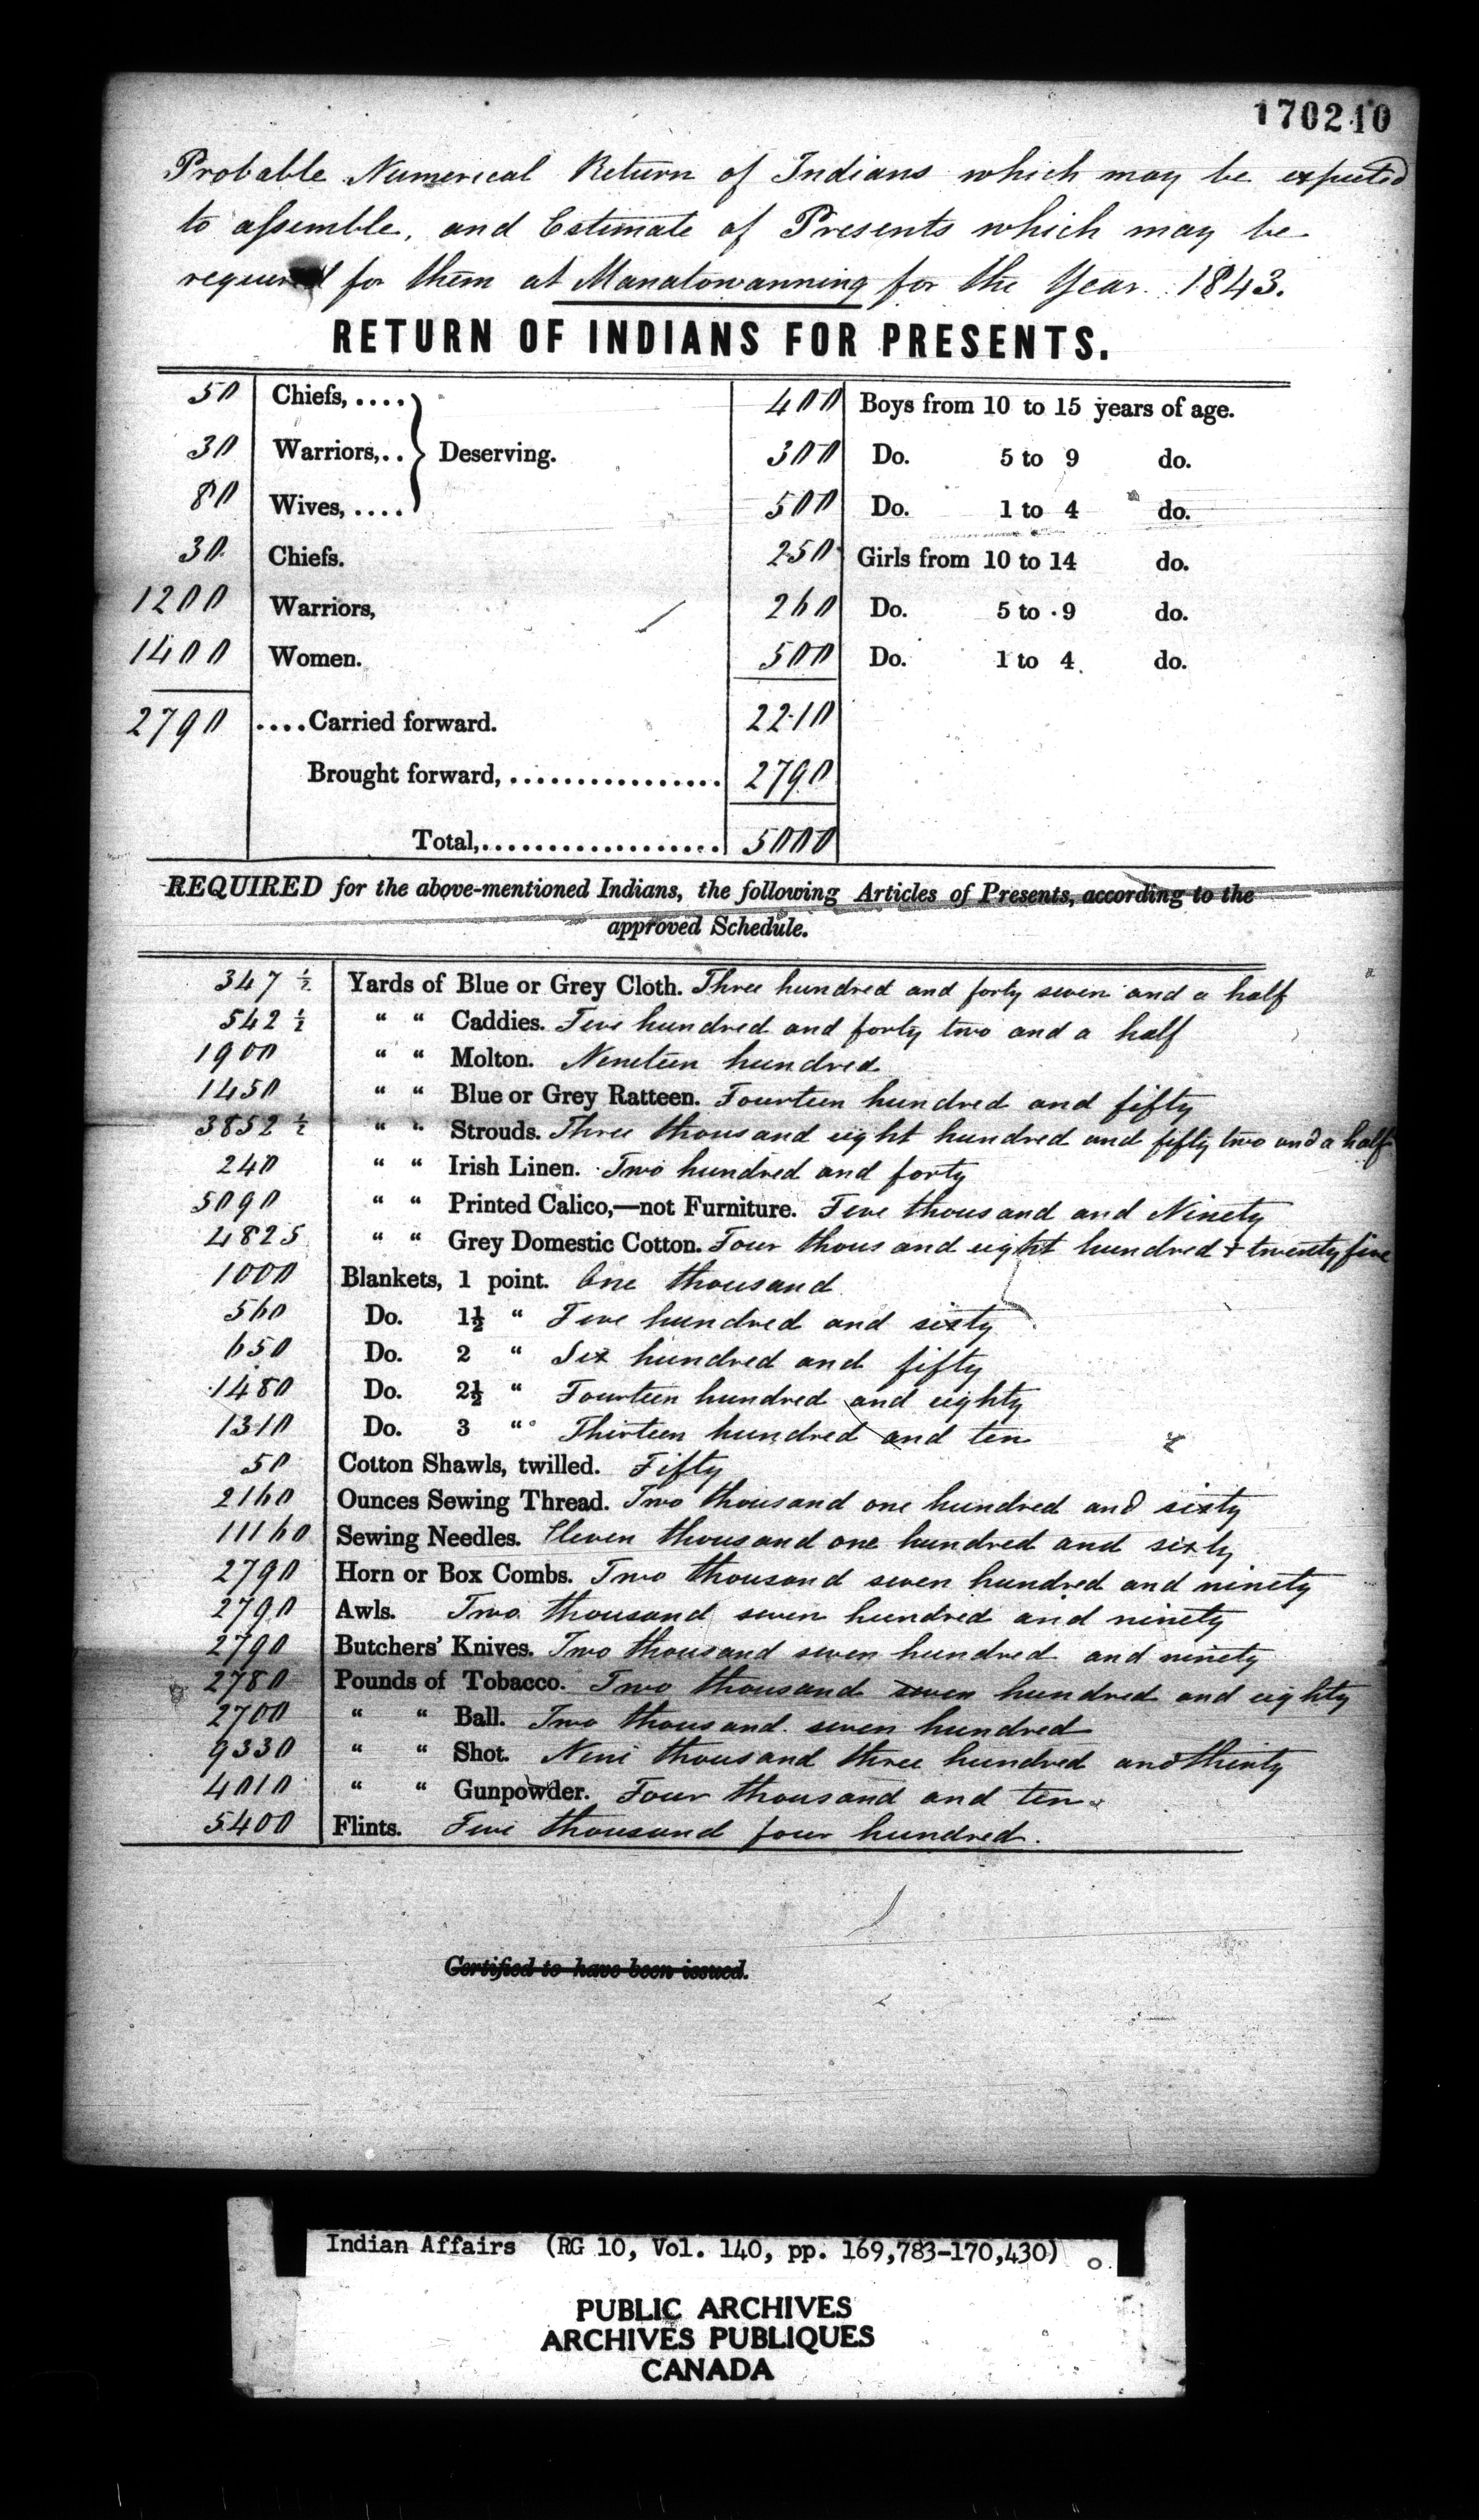 170210
Probable Numerical Return of Indians which may be expected
to assemble, and Estimate of Presents which may be
required for them at Manatowanning for the Year 1843.
RETURN OF INDIANS FOR PRESENTS.
50 Chiefs, .... 400 Boys from 10 to 15 years of age.
30 Warriors,.. } Deserving. 300 Do. 5 to 9 do.
80 Wives, .... 500 Do. 1 to 4 do.
30 Chiefs. 250 Girls from 10 to 14 do.
1200 Warriors, 260 Do. 5 to 9 do.
1400 Women. 500 Do. 1 to 4 do.
2790 ....Carried forward. 2210
Brought forward, ................ 2790
Total,.................. 5000
REQUIRED for the above-mentioned Indians, the following Articles of Presents, according to the
approved Schedule.
347 ½ Yards of Blue or Grey Cloth. Three hundred and forty seven and a half
542 ½ “ “ Caddies. Five hundred and forty two and a half
1900 “ “ Molton. Nineteen hundred
1450 “ “ Blue or Grey Ratteen. Fourteen hundred and fifty
3852 ½ “ “ Strouds. Three thousand eight hundred and fifty two and a half
240 “ “ Irish Linen. Two hundred and forty
5090 “ “ Printed Calico,—not Furniture. Five thousand and Ninety
4825 “ “ Grey Domestic Cotton. Four thousand eight hundred & twenty five
1000 Blankets, 1 point. One thousand
560 Do. 1½ “ Five hundred and sixty
650 Do. 2 “ Six hundred and fifty
1480 Do. 2½ “ Fourteen hundred and eighty
1310 Do. 3 “ Thirteen hundred and ten
50 Cotton Shawls, twilled. Fifty
2160 Ounces Sewing Thread. Two thousand one hundred and sixty
11160 Sewing Needles. Eleven thousand one hundred and sixty
2790 Horn or Box Combs. Two thousand seven hundred and ninety
2790 Awls. Two thousand seven hundred and ninety
2790 Butchers’ Knives. Two thousand seven hundred and ninety
2780 Pounds of Tobacco. Two thousand seven hundred and eighty
2700 “ “ Ball. Two thousand seven hundred
9330 “ “ Shot. Nine thousand three hundred and thirty
4010 “ “ Gunpowder. Four thousand and ten
5400 Flints. Five thousand four hundred.
Certified to have been issued.
Indian Affairs (RG 10, Vol. 140, pp. 169,783-170,430)
PUBLIC ARCHIVES
ARCHIVES PUBLIQUES
CANADA